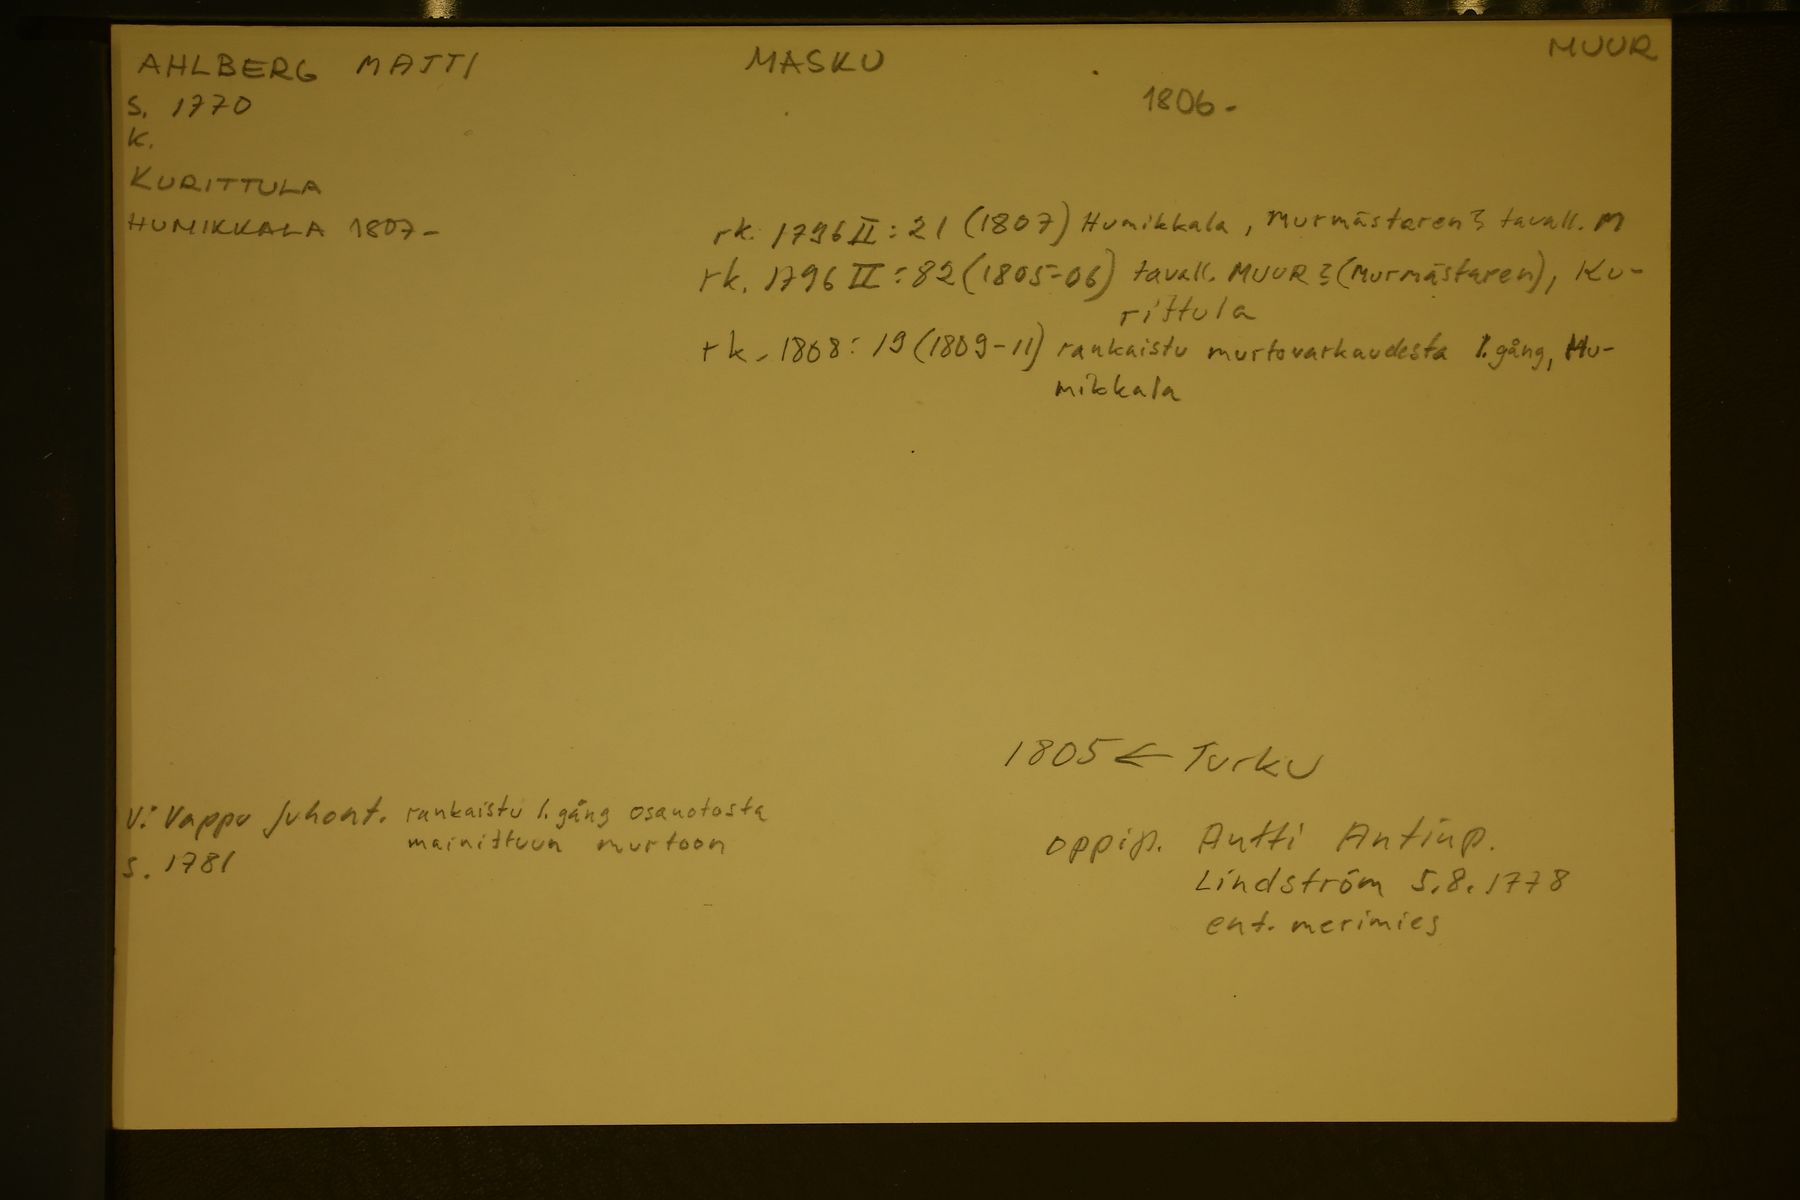 AHLBERG MATTI MASKU MUUR
s. 1770 1806-
k.
KURITTULA
HUMIKKALA 1807-
rk. 1796 II: 21 (1807) Humikkala, Murmästaren? tavall. M
rk. 1796 II: 82 (1805-06) tavall. MUUR? (Murmästaren), Ku-
rittula
rk. 1808: 19 (1809-11) rankaistu murtovarkaudesta 1. gång, Hu-
mikkala
1805 ← Turku
V: Vappu Juhont. rankaistu 1. gång osanotosta
mainittuun murtoon
s. 1781
oppip. Antti Antinp.
Lindström 5.8.1778
ent. merimies